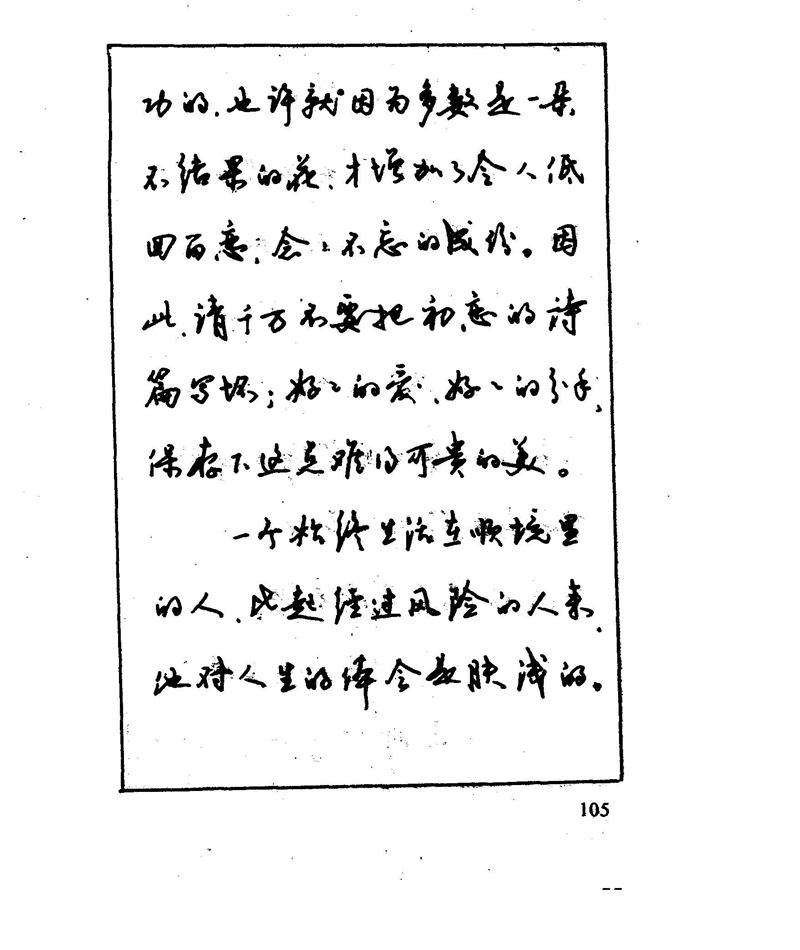 功的，也许就因为多数是一朵
不结果的花，才增加了令人低
回百恋，念々不忘的成份。因
此，请千万不要把初恋的诗
篇写坏；好々的爱，好々的分手，
保存下这点难得可贵的美。
一个始终生活在顺境里
的人，比起经过风险的人来，
他对人生的体会是肤浅的。
105